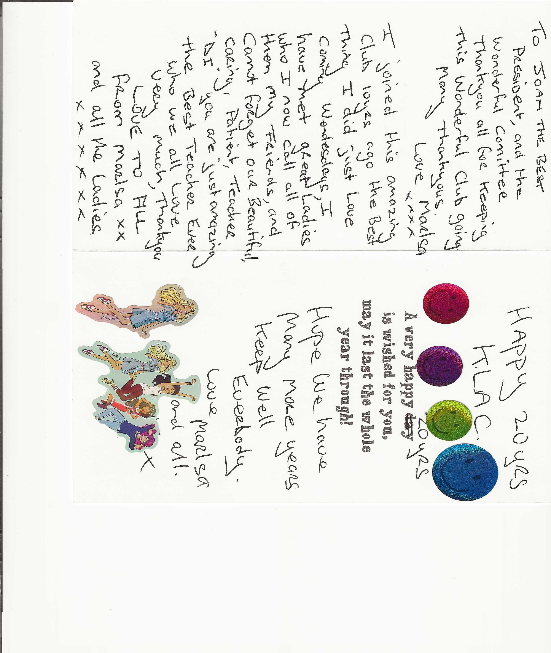 To JOAN THE BEST
President, and the
Wonderful Comittee
Thankyou all for Keeping
this Wonderful Club going
Many Thankyous.
Love Marisa
x x x x
I joined this amazing
Club 10yes ago the Best
Thing I did just Love
Coming Wednesdays, I
have met great Ladies
who I now call all of
them my Friends, and
Cant forget our Beautiful
caring, Patient, Teacher
"Di", you are just amazing
the Best Teacher Ever
who we all Love
very much, Thankyou
LOVE TO ALL
FROM Marisa xx
and all the Ladies
x x x x x x x
HAPPY 20yrs
KLAC.
A very happy day
20yrs
is wished for you,
may it last the whole
year through!
Hope We have
Many More years
Keep Well
Everbody.
Love Marisa
and all.
x